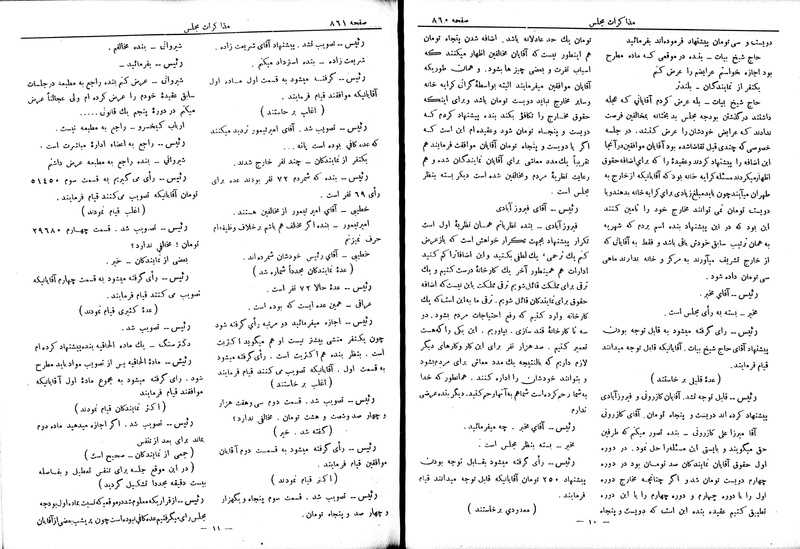 صفحه ۸۶۰
مذاکرات مجلس
دویست و سی تومان پیشنهاد فرموده‌اند بفرمائید
حاج شیخ بیات – بنده در موقعی که ماده مطرح
بود اجازه خواستم عرایضم را عرض کنم
یکنفر از نمایندگان – بلندتر
حاج شیخ بیات – بله عرض کردم آقایانی که مجله
داشتند درگذشتن بودجه مجلس بدبختانه بمخالفین فرصت
ندادند که عرایض خودشان را عرض کنند. در جلسه
خصوصی که چندی قبل تقاضا شده بود آقایان موافقین در آنجا
این اضافه را پیشنهاد کردند و عقیده را که برای اضافه حقوق
اظهار میکردند مسئله کرایه خانه بود که آقایانیکه از خارج به
طهران میآیند چون باید مبلغ زیادی برای کرایه خانه بدهند و با
دویست تومان نمی توانند مخارج خود را تامین کنند
این بود که در این پیشنهاد بنده اسم بردم که شهریه
به همان ترتیب سابق خودش باقی باشد و فقط به آقایانی که
از خارج تشریف میآورند به مرکز و خانه ندارند ماهی
سی تومان داده شود.
رئیس – آقای مخبر.
مخبر – بسته به رأی مجلس است.
رئیس – رای گرفته میشود به قابل توجه بودن
پیشنهاد آقای حاج شیخ بیات. آقایانیکه قابل توجه میدانند
قیام فرمایند.
(عدهٔ قلیل برخاستند)
رئیس – قابل توجه نشد. آقایان کازرونی و فیروزآبادی
پیشنهاد کرده اند دویست و پنجاه تومان. آقای کازرونی
آقا میرزا علی کازرونی – بنده تصور میکنم که طرفین
حق میگویند و بایستی این مسئله را حل نمود. در دوره
اول حقوق آقایان نمایندگان صد تومان بود در دوره
چهارم دویست تومان شد و اگر چنانچه مخارج دوره
اول را با دوره چهارم و دوره چهارم را با این دوره
تطبیق کنیم عقیده بنده این است که دویست و پنجاه
تومان یک حد عادلانه باشد. اضافه شدن پنجاه تومان
هم اینطور نیست که آقایان مخالفین اظهار میکنند که
اسباب نفرت و بعضی چیزها بشود. و همان طوریکه
آقایان موافقین میفرمایند البته بواسطه گرانی کرایه خانه
وسایر مخارج نباید دویست تومان باشد و برای اینکه
حقوق مخارج را تکافؤ بکند بنده پیشنهاد کردم که
دویست و پنجاه تومان شود و عقیده‌ام این است که
اگر با دویست و پنجاه تومان آقایان موافقت فرمایند هم
تقریباً یک مدد معاشی برای آقایان نمایندگان شده و هم
رعایت نظریهٔ مردم و مخالفین شده است دیگر بسته بنظر
مجلس است.
رئیس – آقای فیروز آبادی
فیروزآبادی – بنده نظریاتم همان نظریهٔ اول است
تکرار پیشنهاد بجهت تکرار خواهش است که باز عرض
کنم یک رحمی، یک لطفی بکنید و این اضافات را کم کنید
ادارات هم همینطور آخر یک کارخانهٔ درست کنیم و یک
ترقی برای مملکت قائل شویم ترقی مملکت باین نیست که اضافه
حقوق برای نمایندگان قائل شویم. ترقی ما به این است که یک
کارخانه وارد کنیم که رفع احتیاجات مردم بشود. دو
سه تا کارخانه قند سازی. بیاوریم. این یکی را که هست
تعمیر کنیم. صد هزار نفر برای این کار و کارهای دیگر
لازم داریم که بالنتیجه یک مدد معاشی برای مردم بشود
و بتوانند خودشان را اداره کنند. همانطور که خدا
به شما رحم کرده است شما هم به آنها رحم کنید. دیگر بنده عرضی
ندارم
رئیس – آقای مخبر. چه میفرمائید.
مخبر – بسته بنظر مجلس است.
رئیس – رأی گرفته میشود بقابل توجه بودن
پیشنهاد ۲۵۰ تومان آقایانیکه قابل توجه میدانند قیام
فرمایند.
(معدودی برخاستند)
– ۱۰ –
صفحه ۸۶۱
مذاکرات مجلس
رئیس – تصویب نشد. پیشنهاد آقای شریعت زاده.
شریعت زاده – بنده استرداد میکنم.
رئیس – گرفته میشود به قسمت اول ماده اول
آقایانیکه موافقند قیام فرمایند.
(اغلب برخاستند)
رئیس – تصویب شد. آقای امیرتیمور تردید میکنند
که عده کافی بوده است یا نه...
یکنفر از نمایندگان – چند نفر خارج شدند.
رئیس – بنده که شمردم ۷۲ نفر بودند عده برای
رأی ۶۹ نفر است.
خطیبی – آقای امیر تیمور از مخالفین هستند.
امیرتیمور – بنده اگر مخالف هم باشم برخلاف وظیفه‌ام
حرف نمیزنم
خطیبی – آقای رئیس خودشان شمرده‌اند.
(عدهٔ نمایندگان مجدداً شماره شد)
رئیس – حالا ۷۲ نفر است.
عراقی – همین عده ایست که بوده است.
رئیس – اجازه میفرمائید دو مرتبه رأی گرفته شود
چون یکنفر منشی بیشتر نیست او هم میگوید اکثریت
است. بنظر بنده هم اکثریت است. رأی گرفته میشود
به قسمت اول. آقایانیکه تصویب می کنند قیام فرمایند
(اغلب برخاستند)
رئیس – تصویب شد. قسمت دوم سی وهفت هزار
و چهار صد وشصت و هشت تومان. مخالفی ندارد؟
(گفته شد. خیر)
رئیس – رأی گرفته میشود به قسمت دوم آقایان
موافقین قیام فرمایند.
(اکثر نمایندگان قیام نمودند)
رئیس – تصویب شد. قسمت سوم پنجاه و یکهزار
و چهار صد و پنجاه تومان.
شیروانی – بنده مخالفم.
رئیس – بفرمائید –
شیروانی – عرض کنم بنده راجع به مطبعه در جلسات
سابق عقیدهٔ خودم را عرض کرده ام ولی عجالتاً عرض
میکنم در دورهٔ پنجم یک قانونی.....
ارباب کیخسرو – راجع به مطبعه نیست.
رئیس – راجع به اعضاء ادارهٔ مباشرت است.
شیروانی – بنده راجع به مطبعه عرض داشتم
رئیس – رأی می گیریم به قسمت سوم ۵۱۴۵۰
تومان آقایانیکه تصویب می کنند قیام فرمایند.
(اغلب قیام نمودند)
رئیس – تصویب شد. قسمت چهارم ۲۹۶۸۰
تومان؛ مخالفی ندارد؟
بعضی از نمایندگان – خیر.
رئیس – رأی گرفته میشود به قسمت چهارم آقایانیکه
تصویب می کنند قیام فرمایند.
(عدهٔ کثیری قیام نمودند)
رئیس – تصویب شد.
دکتر سنگ – یک مادهٔ الحاقیه بنده پیشنهاد کرده ام
رئیس – مادهٔ الحاقیه پس از تصویب مواد باید مطرح
شود. رای گرفته میشود به مجموع مادهٔ اول آقایانیکه
موافقند قیام فرمایند
(اکثر نمایندگان قیام نمودند)
رئیس – تصویب شد. اگر اجازه میدهید ماده دوم
بماند برای بعد از تنفس
(جمعی از نمایندگان – صحیح است)
(در این موقع جلسه برای تنفس تعطیل و بفاصله
بیست دقیقه مجدداً تشکیل گردید)
رئیس – از قراریکه معلوم شد در موقعیکه نسبت به ماده اول بودجه
مجلس رأی میگرفتیم عده کافی نبوده است چون بر یشب بعضی از آقایان
– ۱۱ –